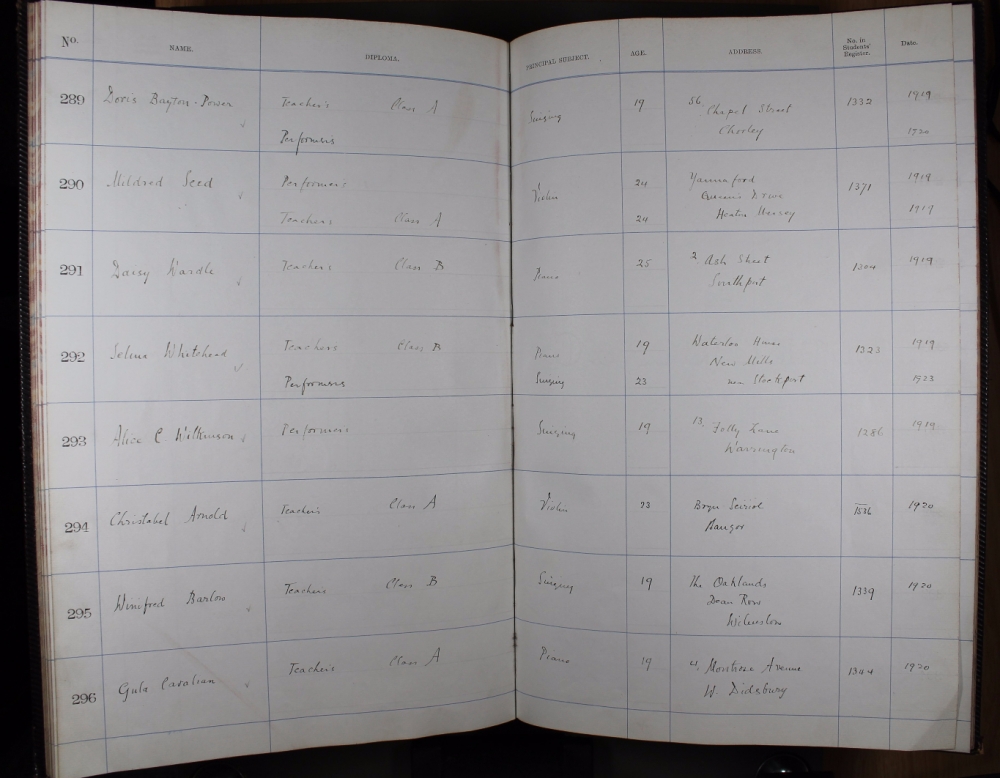 No. NAME. DIPLOMA. PRINCIPAL SUBJECT. AGE. ADDRESS. No. in Students' Register. Date.
289 Doris Bayton-Power Teacher's Class A Singing 19 56 Chapel Street 1332 1919
Performers Chorley 1920
290 Mildred Seed Performers Violin 24 1371 1919
Queen's Drive
Teachers Class A 24 Heaton Mersey 1919
291 Daisy Wardle Teachers Class B Piano 25 2 Ash Street 1304 1919
Southport
292 Selina Whitehead Teachers Class B Piano 19 Waterloo House 1323 1919
New Mills
Performers Singing 23 near Stockport 1923
293 Alice C. Wilkinson Performers Singing 19 13, Folly Lane 1286 1919
Warrington
294 Christabel Arnold Teachers Class A Violin 23 Bryn Seiriol 1536 1920
Bangor
295 Winifred Barlow Teachers Class B Singing 19 The Oaklands 1339 1920
Dean Row
Wilmslow
296 Gula Teachers Class A Piano 19 4, Montrose Avenue 1344 1920
W. Didsbury